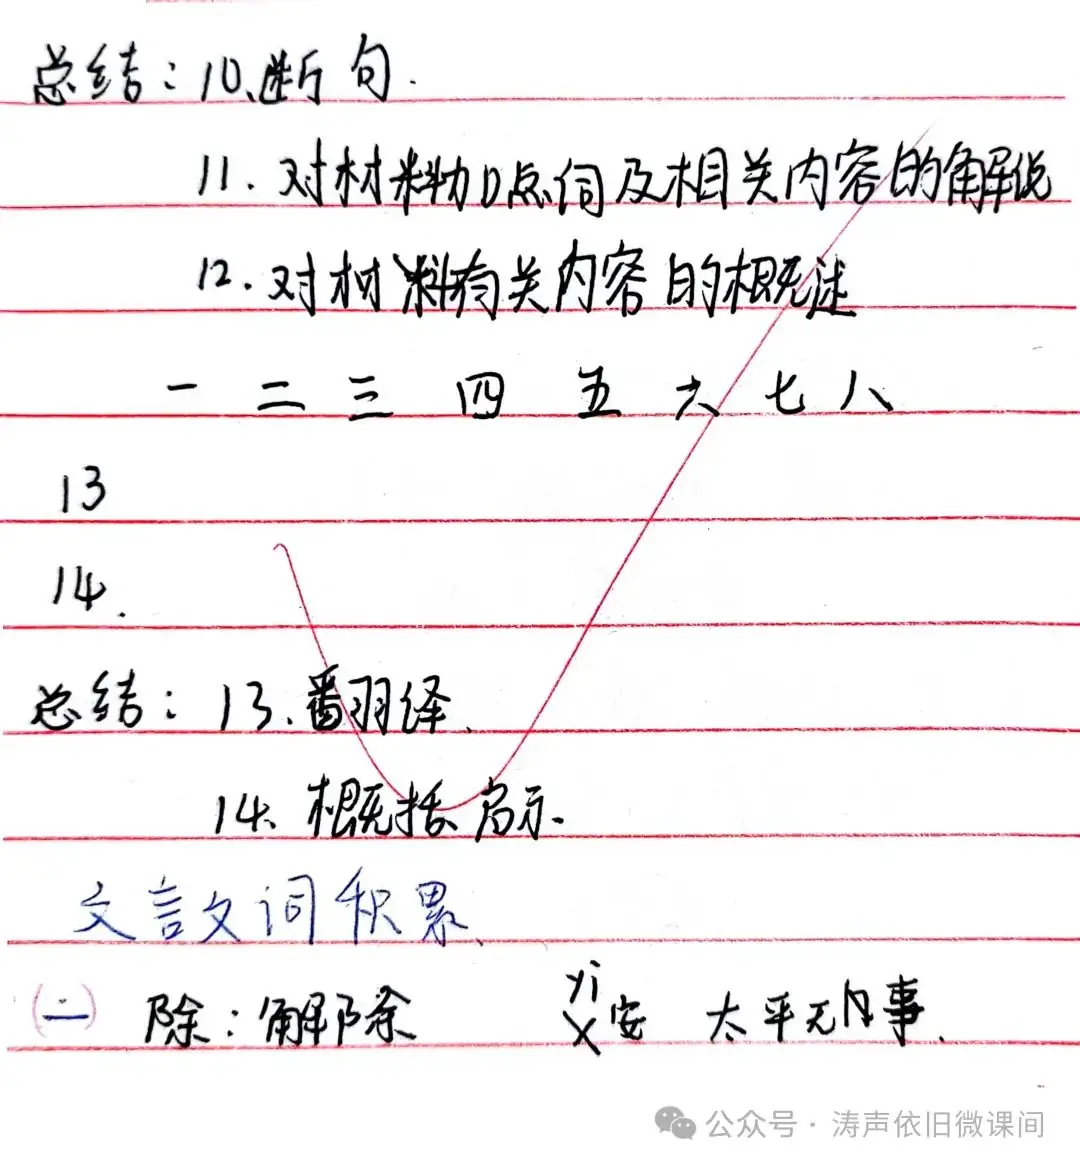 总结：10、断句.
11. 对材料加点词及相关内容的解说
12. 对材料有关内容的概述
一 二 三 四 五 六 七 八
13
14.
总结：13.翻译.
14. 概括启示.
文言文词积累、
(二) 除：解除 yi 乂安 太平无事.
公众号 · 涛声依旧微课间